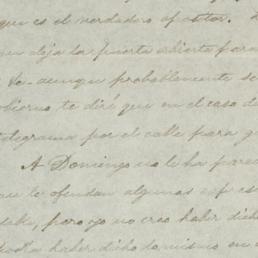 que es el verdadero
deja la puerta abierta para
te. aunque probablemente se
obierno te diré que en el caso de
telegrama por el cable para
A Domingo no le ha pare
que le ofendan algunas
dable, pero yo no creo haber dicho
haber dicho lo mismo en